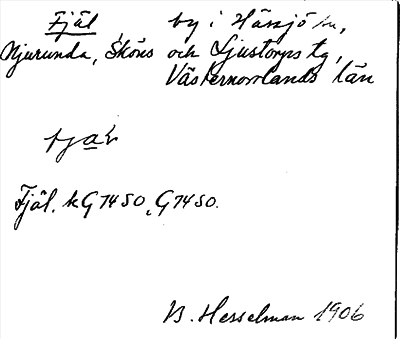 Fjäl by i Hässjö sn,
Njurunda, Sköns och Ljustorps tg,
Västernorrlands län
Fjäl. kG 1450, G 1450.
B. Hesselman 1906